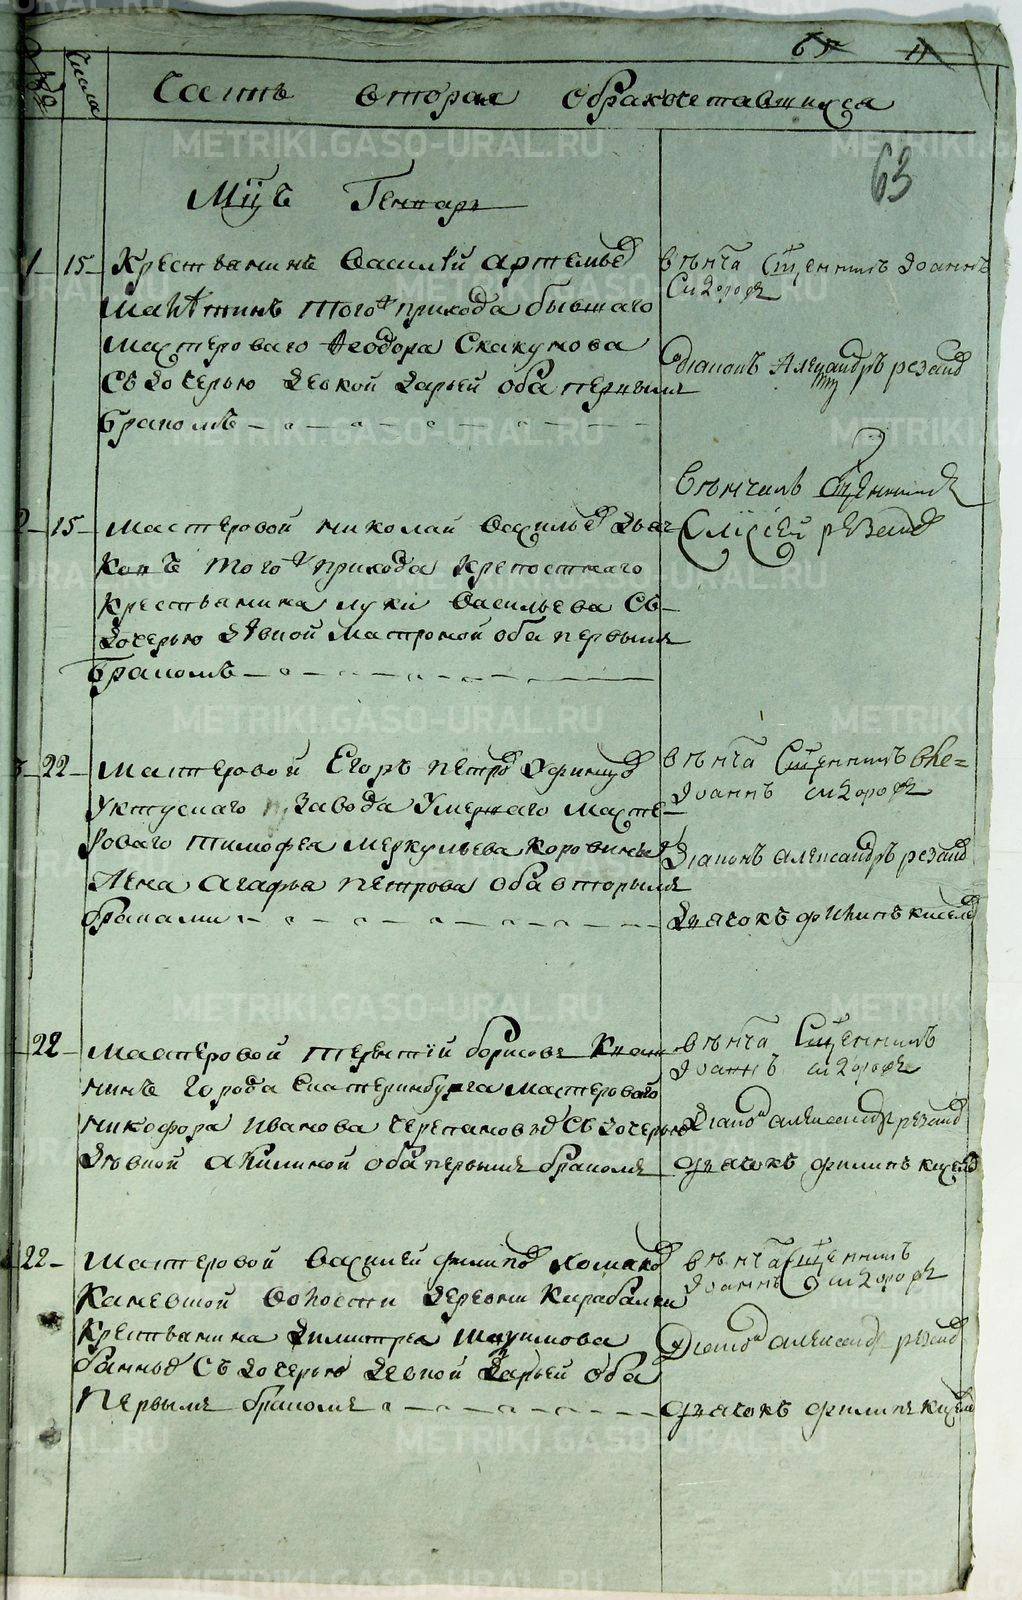 65 11
Числа
Часть вторая о бракосочетавшихся
63
Мцъ Генварь
1 15 Крестьянинъ Василiй Артемьев
того прихода бывшаго
мастероваго Ѳеодора Скакунова
съ дочерью девкой Дарьей оба первымъ
бракомъ
венча Сщенникъ Иоаннъ
Сидоровъ
Диаконъ Александръ Резанов
2 15 Мастеровой Николай Васильев Дья
конъ того прихода крепостнаго
крестьянина Луки Васильева съ
дочерью девкой Матроной оба первымъ
бракомъ
венчалъ Сщенникъ
Алексей Резанов
3 22 Мастеровой Егоръ Петров
Уктускаго завода умершаго масте
роваго Тимофея Меркульева Коровина
жена Агафья Петрова оба вторымъ
браками
венча Сщенникъ
Иоаннъ Сидоровъ
Диаконъ Александръ Резанов
Дьячокъ Филипъ Кисел
22 Мастеровой Терентiй Борисовъ
города Екатеринбурга мастероваго
Никифора Иванова Черепанова съ дочерью
девкой Акилиной оба первымъ бракомъ
венча Сщенникъ
Иоаннъ Сидоровъ
Диакон Александр Резанов
дьячокъ Филипъ Кисел
22 Мастеровой Василей Филипов
Каменской волости деревни
крестьянина Димитрея Максимова
съ дочерью девкой Дарьей оба
первымъ бракомъ
венча Сщенникъ
Иоаннъ Сидоровъ
Диакон Александр Резанов
дьячокъ Филипъ Кисел
METRIKI.GASO-URAL.RU